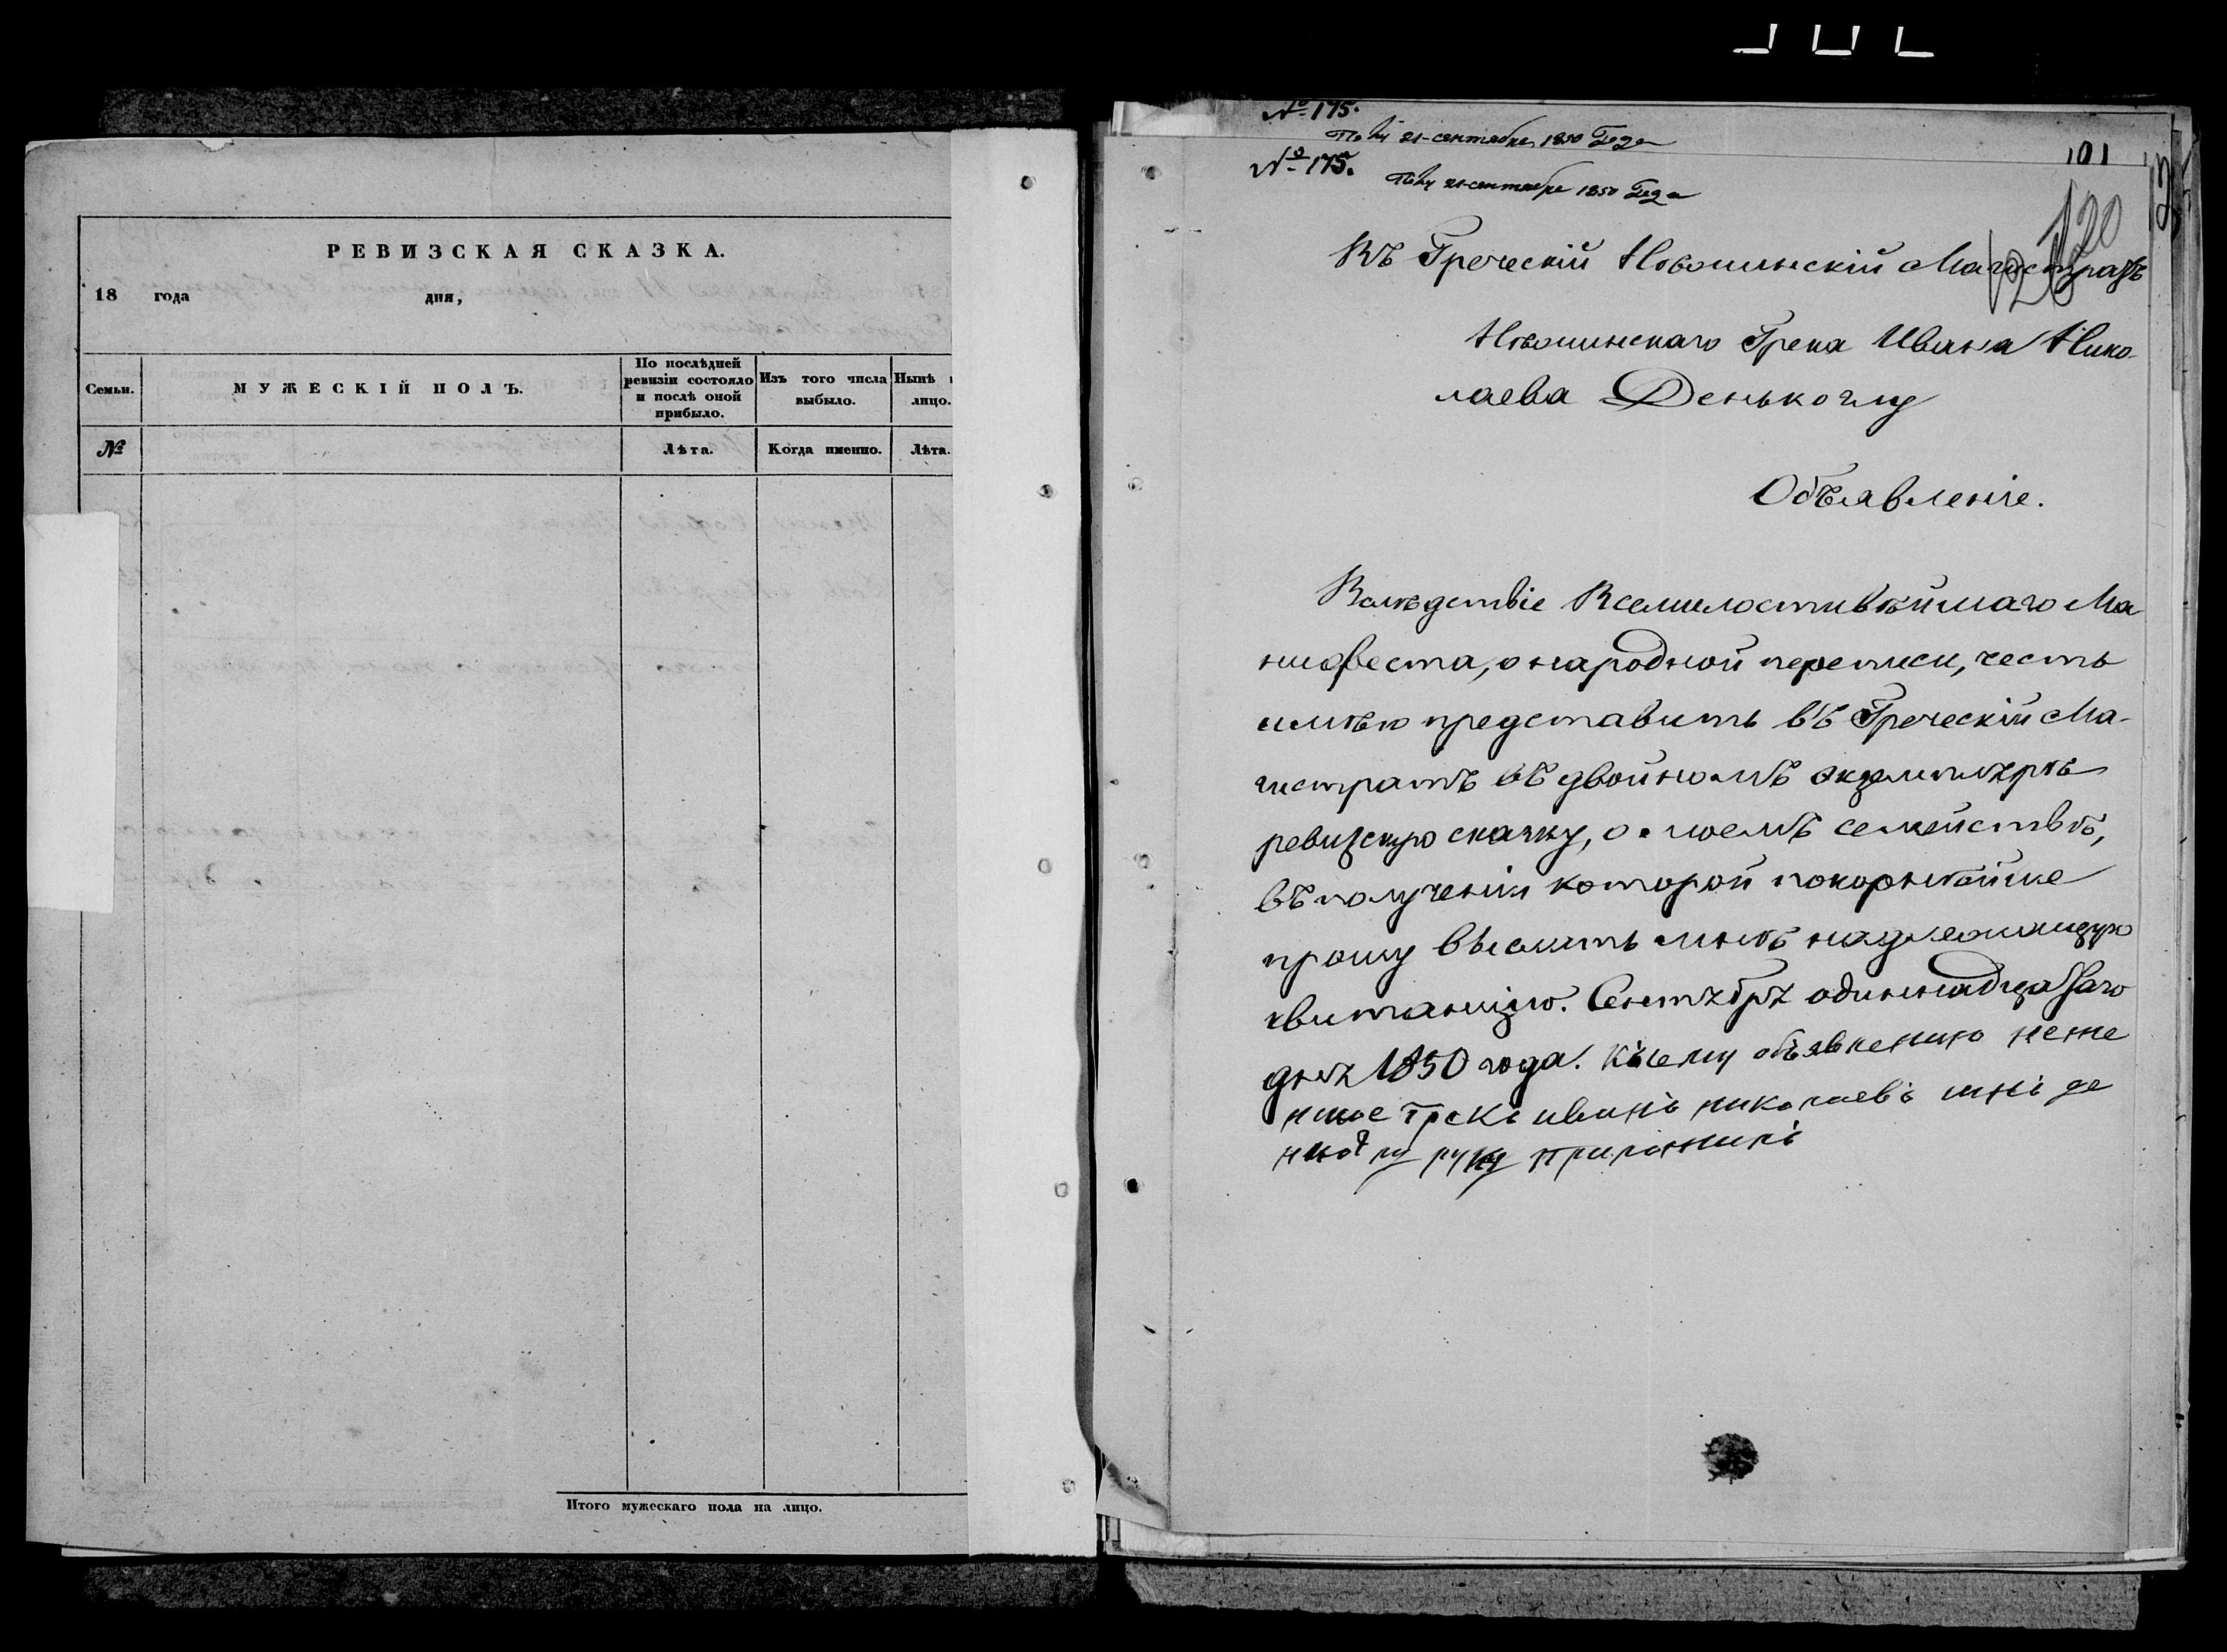 РЕВИЗСКАЯ СКАЗКА.
18 года дня,
Семьи.
МУЖЕСКІЙ ПОЛЪ.
По послѣдней ревизіи состояло и послѣ оной прибыло.
Изъ того числа выбыло.
Нынѣ лицо.
№
Лѣта.
Когда именно.
Лѣта.
Итого мужескаго пола на лицо.
№ 175.
21 сентября 1850 Года
№ 175.
21 сентября 1850 Года
101
120
Въ Греческій Магистратъ
Грека Ивана Нико-
лаева Денькоглу
Объявленіе.
Вслѣдствіе Всемилостивѣйшаго Ма
нифеста, о народной переписи, честь
имѣю представить въ Греческій Ма-
гистратъ въ двойномъ экземплярѣ
ревизскую сказку, о моемъ семействѣ,
въ полученіи которой покорнѣйше
прошу выслать мнѣ надлежащую
квитанцію. Сентября одиннадцатаго
дня 1850 года. Къ сему объявлению неже
грекъ иванъ николаевъ де
руку приложилъ